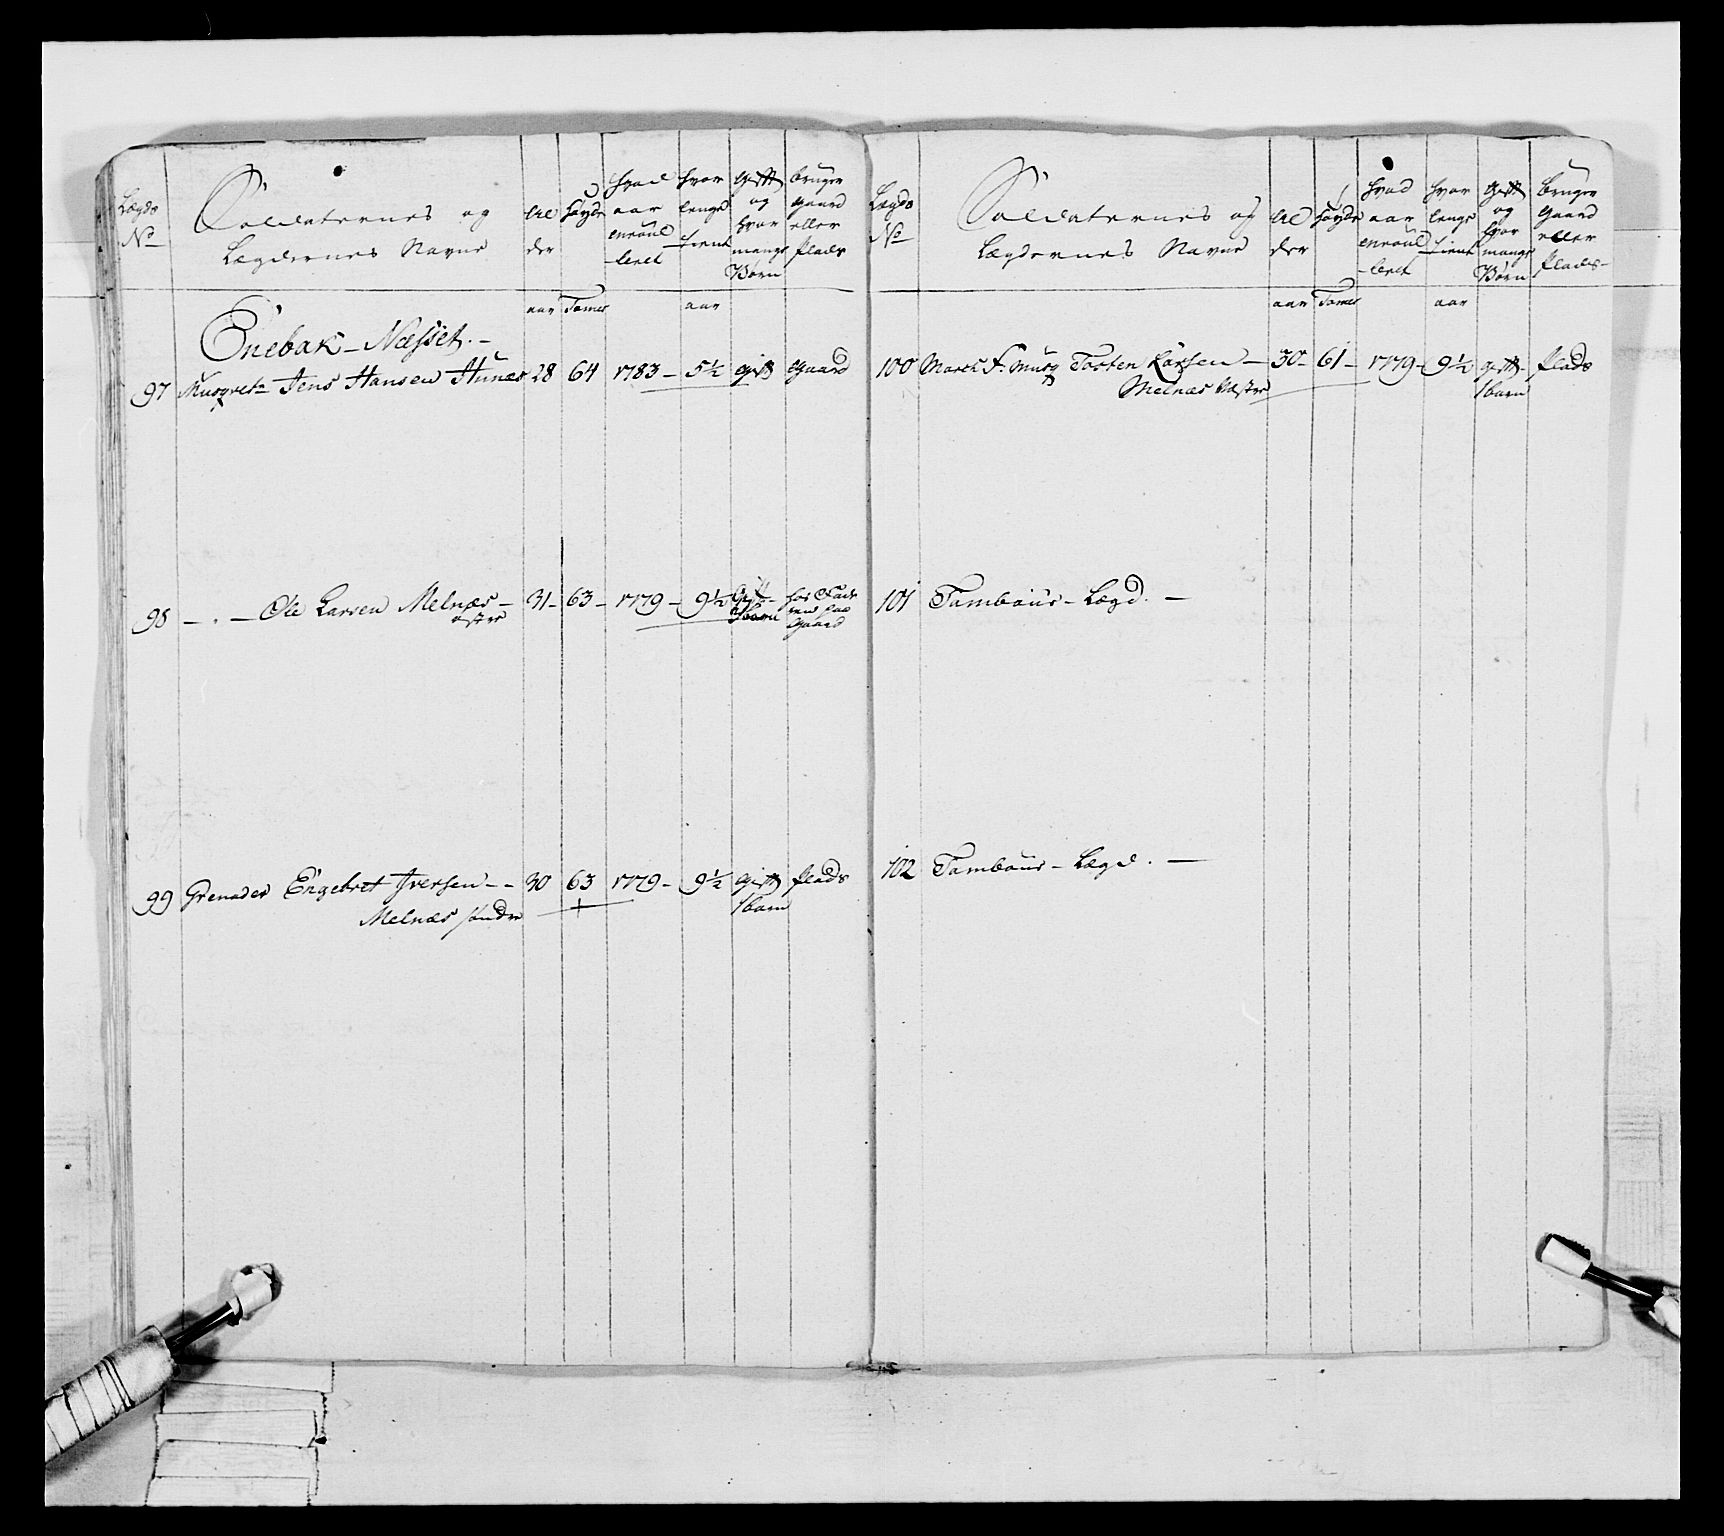 Lægds No
Soldaternes og Lægdernes Navne
Al der
høyde
hvad aar enroul leret
hvor lenge tient
Gift og hvor mange Børn
bruger Gaard eller Plads
aar Tomer aar
Enebak - Næsset. -
97 Musqvetr Jens Hansen Hunæs 28 64 1783 - 5½ gift Gaard
98 - . - Ole Larsen Melnæs - 31 - 63 - 1779 - 9½ Gift -
østre 1 barn Gaard
99 Grenader Engebret Iversen - - 30 63 1779 - 9½ gift Plads
Melnæs søndre 1 barn
Lægds No
Soldaternes og Lægdernes Navne
Al der
høyde
hvad aar enroul leret
hvor lenge tient
Gift og hvor mange Børn
Bruger Gaard eller Plads -
aar Tomer aar
100 March F. Musq Tosten Larsen - 30 - 61 - 1779 - 9½ gift - Plads
Melnæs Vestre 1 barn
101 Tambour - Lægd. -
102 Tambour - Lægd. -